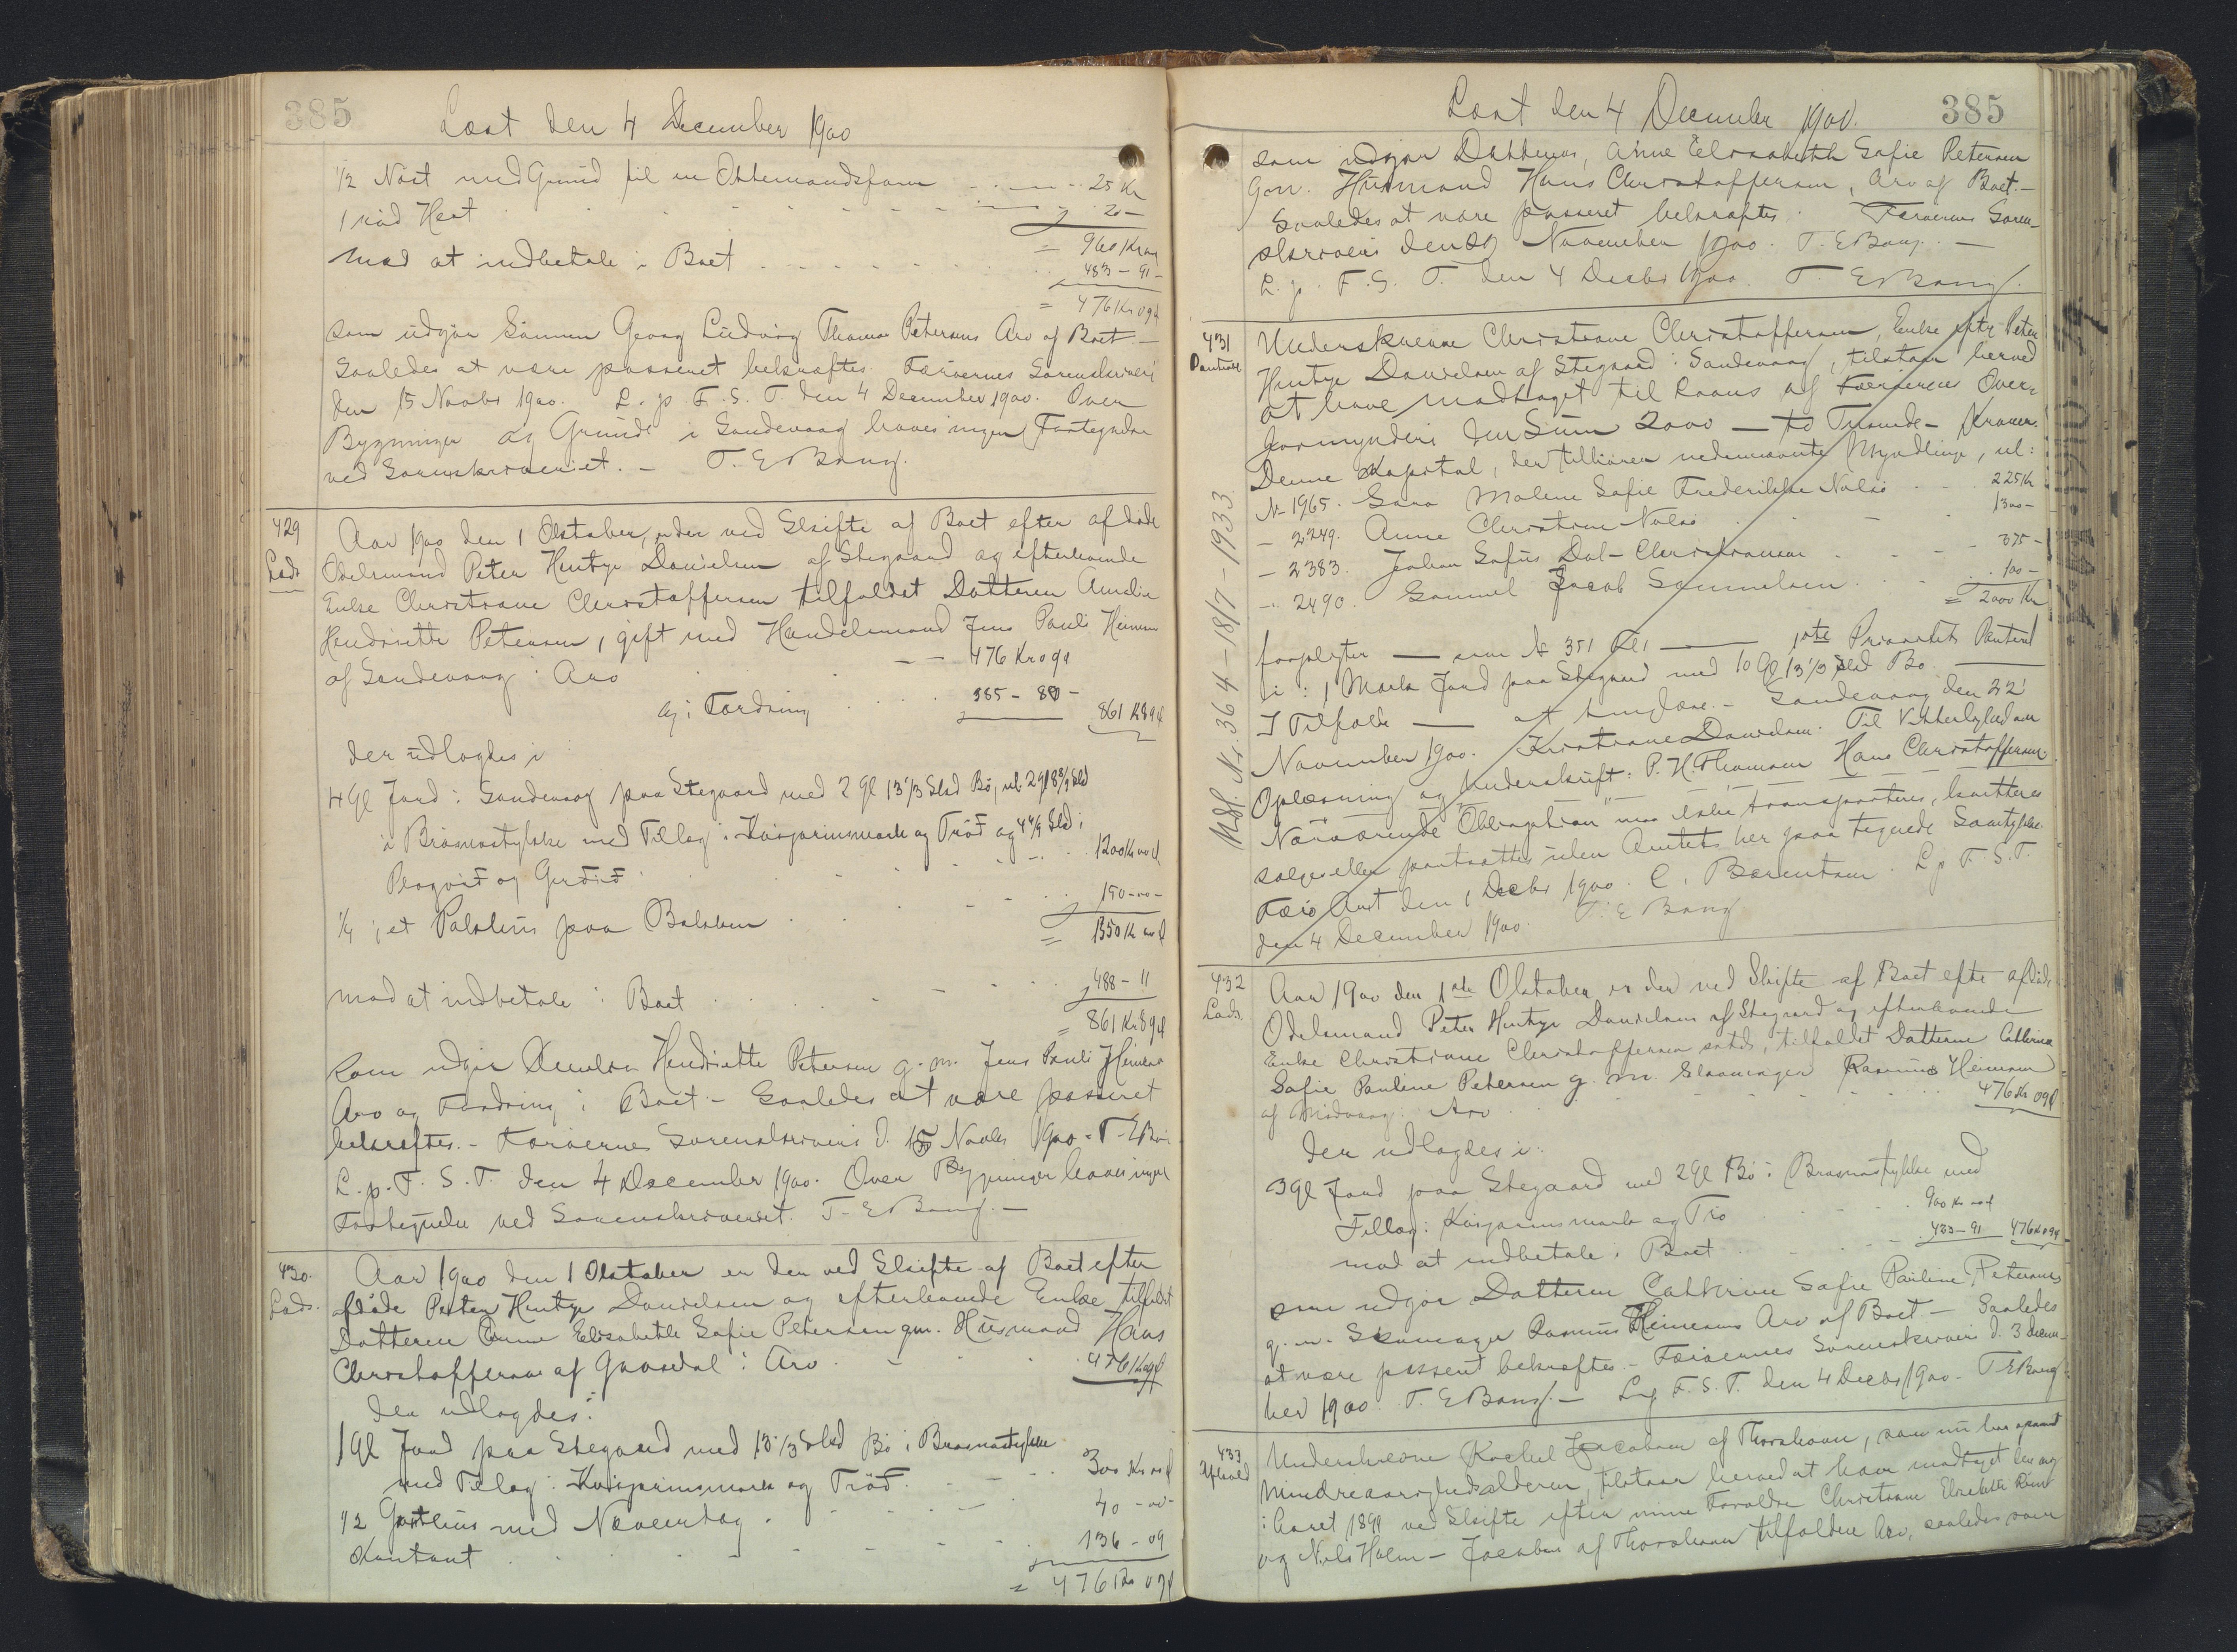 385
Læst den 4 December 1900
1/2 Nöst med Grund til en Ottemandsfarer 25 Kr
1 röd Hest 20 —
= 960 Kroner
Mod at indbetale i Boet 483 – 91 –
= 476 Kr 09 d
som udgör Sönnen Georg Ludvig Thomas Petersens Arv af Boet. —
Saaledes at være passeret bekræftes. Færöernes Sorenskriveri
den 15 Novbr 1900. L. p. F. S. T. den 4 December 1900. Over
Bygninger og Grund i Sandevaag haves ingen Fortegnelse
ved Sorenskriveriet. — T. E Bang.
429
Lods.
Aar 1900 den 1 Oktober, er der ved Skifte af Boet efter afdöde
Odelsmand Peter Hentze Danielsen af Stegaard og efterlevende
Enke Christiane Christoffersen tilfaldet Datteren Amalie
Hendriette Petersen, gift med Handelsmand Jens Pauli Heinesen
af Sandevaag i Arv 476 Kr 09 d
og i Fordring 385 – 80 – 861 Kr 89 d
der udlagdes i
4 Gl Jord i Sandevaag paa Stegaard med 2 Gl 13 1/3 Skd Bö, nl. 2 Gl 8 8/9 Skd
i Brösnastykke med Tillæg i Kvisprinsmark og Tröd og 4 4/9 Skd i
og 1200 Kr 00 d
1/4 i et Pakhus paa Bakken 150 – 00 –
= 1350 Kr 00 d
mod at indbetale i Boet 488 – 11
= 861 Kr 89 d
som udgör Amalie Hendriette Petersen g. m. Jens Pauli Heinesen
Arv og Fordring i Boet – Saaledes at være passeret
bekræftes. – Færöernes Sorenskriveri d. 15 Novbr 1900 – T. E Bang
L. p. F. S. T. den 4 December 1900. Over Bygninger haves ingen
Fortegnelse ved Sorenskriveriet. T. E Bang. —
430.
Lods.
Aar 1900 den 1 Oktober er der ved Skifte af Boet efter
afdöde Peter Hentze Danielsen og efterlevende Enke tilfaldet
Datteren Anne Elisabeth Sofie Petersen gm. Husmand Hans
Christoffersen af Gaasedal i Arv 476 Kr 09 d
der udlagdes i
1 Gl Jord paa Stegaard med 13 1/3 Skd Bö i Brösnastykke
med Tillæg i Kvisprinsmark og Tröd. 300 Kr 00 d
1/2 med 40 – 00 –
Kontant 136 – 09
= 476 Kr 09 d
Læst den 4 December 1900. 385
som udgjör Datteren, Anne Elisabeth Sofie Petersen
g. m. Husmand Hans Christoffersen, Arv af Boet. —
Saaledes at være passeret bekræftes. Færöernes Soren-
skriveri den November 1900. T. E Bang. —
L. p. F. S. T. den 4 Decbr 1900. T. E Bang.
431
Panteobl
Underskrevne Christiane Christoffersen, Enke efter Peter
Hentze Danielsen af Stegaard i Sandevaag, tilstaar herved
at have modtaget til Laans af Færöernes Over-
formynderi den Sum 2000 — to Tusinde – Kroner.
Denne Kapital, der tilhörer nedennævnte Myndlinge, nl:
№ 1965. Sara Malene Sofie Frederikke Nolsö 225 Kr
— 2249. Anne Christine Nolsö 1300 –
— 2383. Johan Sofus Dal – Christiansen 375 –
— 2490. Samuel Jacob Samuelsen 100 –
= 2000 Kr
forpligter — som № 351 — 1ste Prioritets Panteret
i: 1 Mark Jord paa Stegaard med 10 Gl 13 1/3 Skd Bö. —
I Tilfælde — at tinglæse. – Sandevaag den 22'
November 1900. Kristiane Danielsen. Til Vitterlighed om
Oplæsning og Underskrift: P. H. Thomsen Hans Christoffersen
Nærværende Obligation maa ikke transporteres, kvitteres
sælges eller pantsættes uden Amtets her paa tegnede Samtykke.
Færö Amt den 1 Decbr 1900. C. Bærentsen. L. p. F. S. T.
den 4 December 1900. T. E Bang
Udsl. Nr. 364 – 18/7 – 1933
432
Lods.
Aar 1900 den 1ste Oktober er der ved Skifte af Boet efter afdöde
Odelsmand Peter Hentze Danielsen af Stegaard og efterlevende
Enke Christiane Christoffersen sstds, tilfaldet Datteren Cathrine
Sofie Pauline Petersen g. m. Skomager Rasmus Heinesen
af Midvaag i Arv 476 Kr 09 d
der udlagdes i
3 Gl Jord paa Stegaard med 2 Gl Bö i Brösnastykke med
Tillæg i Kvisprinsmark og Trö 900 Kr 00 d
mod at indbetale i Boet 423 – 91 476 Kr 09 d
som udgör Datteren Cathrine Sofie Pauline Petersens
g. m. Skomager Rasmus Heinesens Arv af Boet – Saaledes
at være passeret bekræftes. – Færöernes Sorenskriveri d. 3 Decem-
ber 1900. T. E Bang. — L. p. F. S. T. den 4 Decbr 1900. T. E Bang
433
Afkald
Underskrevne Rachel Jacobsen af Thorshavn, som nu har opnaaet
Mindreaarighedsalderen, tilstaar herved at have modtaget den mig
i Aaret 1899 ved Skifte efter mine Forældre Christiane Elisabeth
og Niels Holm – Jacobsen af Thorshavn tilfaldne Arv, saaledes som